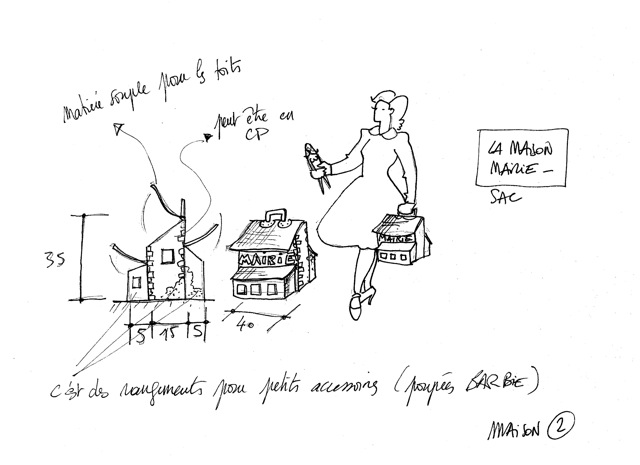 Matière souple pour les toits
peut être en
CP
LA MAISON
MAIRIE -
SAC
35
MAIRIE
MAIRIE
5 15 5
40
C'est des rangements pour petits accessoires (poupées BARBIE)
MAISON 2